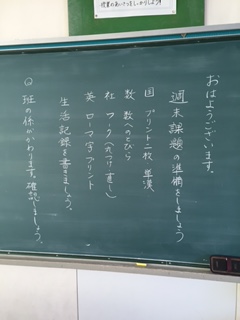 授業のあいさつをしっかりしよう
おはようございます。
週末課題の準備をしましょう
国 プリント二枚 単漢
数 数へのとびら
社 ワーク(丸つけ・直し)
英 ローマ字プリント
生活記録を書きましょう。
◎班の係がかわります。確認しましょう。